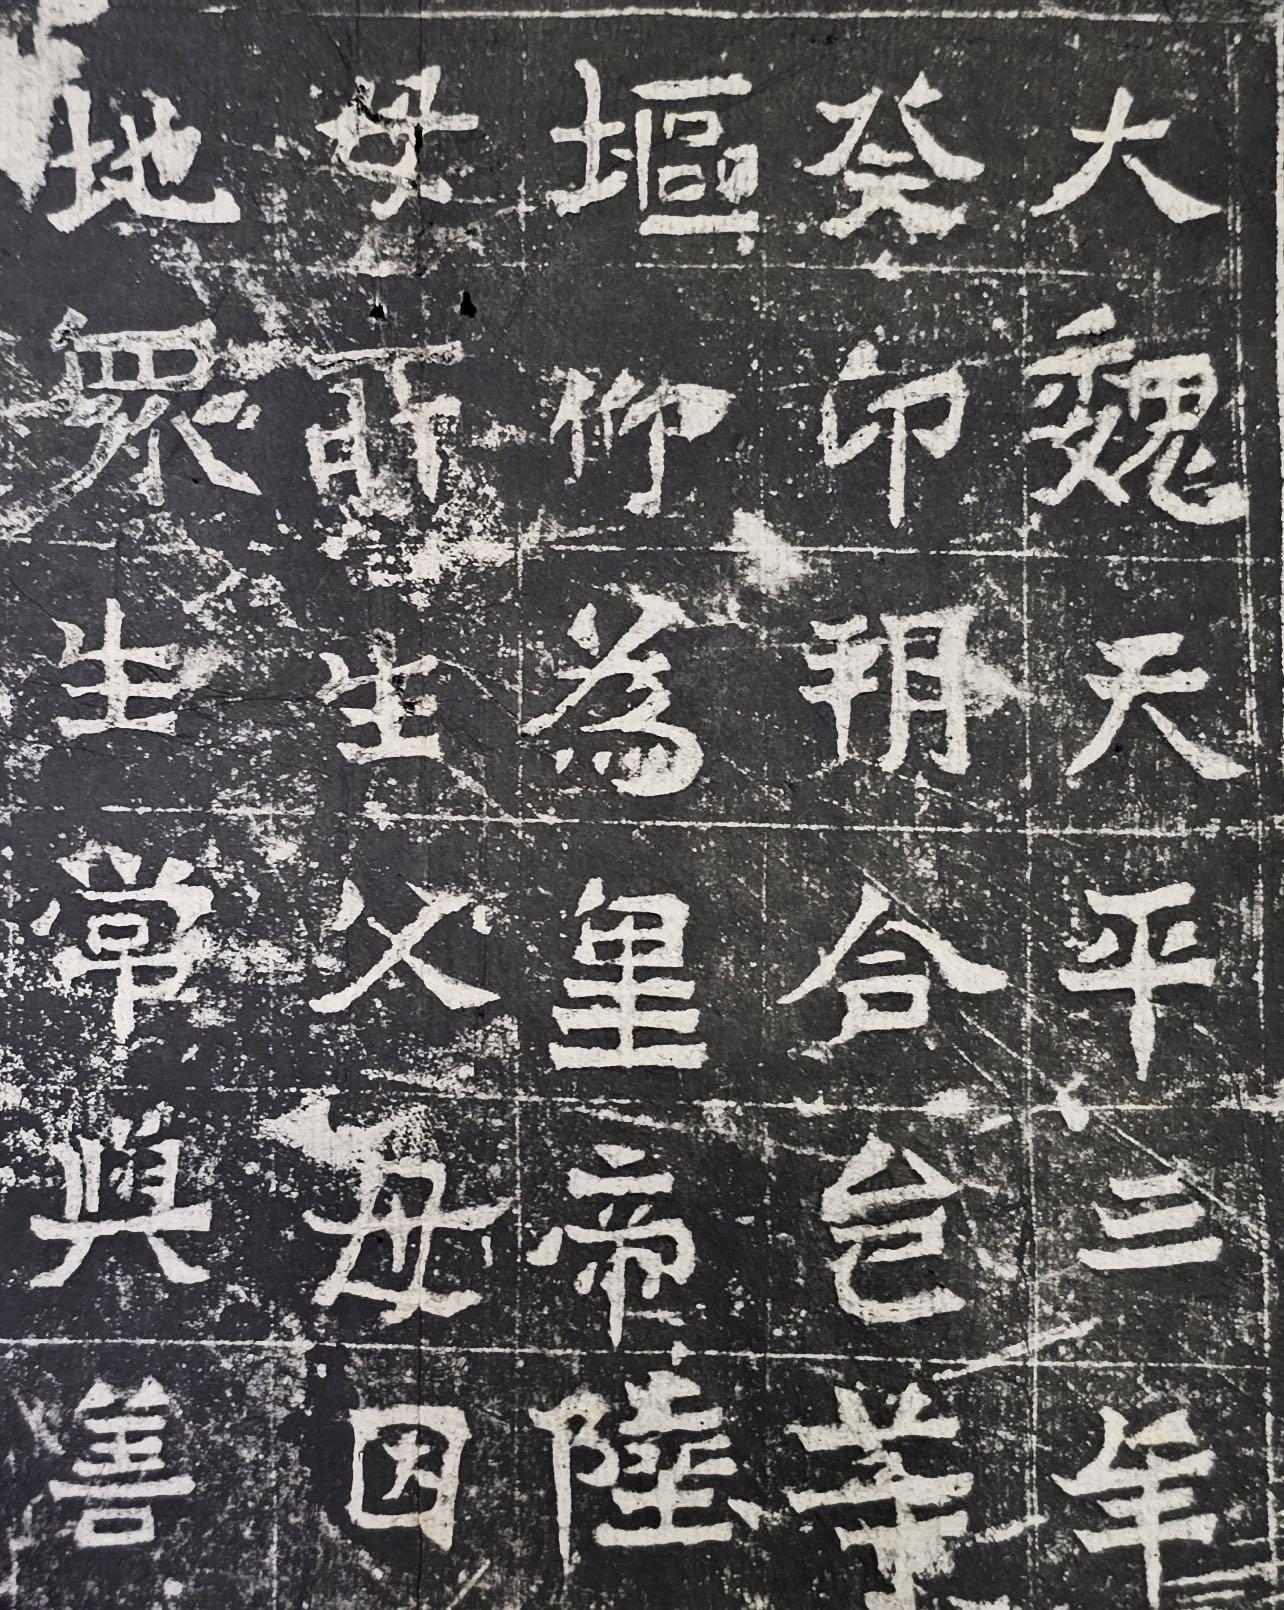 大魏天平三年
癸卯朔合邑等
塸仰為皇帝陛
母所生父母因
地眾生常與善